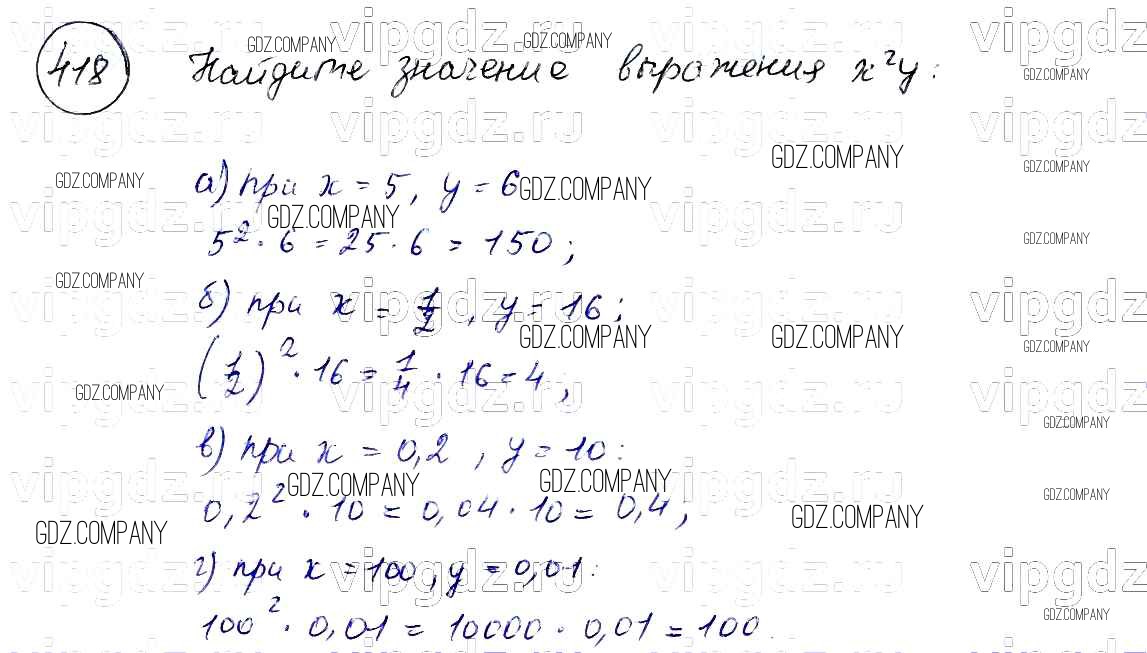 418 Найдите значение выражения x²y:
а) при x = 5, y = 6
5² · 6 = 25 · 6 = 150;
б) при x = 1/2, y = 16;
(1/2)² · 16 = 1/4 · 16 = 4;
в) при x = 0,2, y = 10:
0,2² · 10 = 0,04 · 10 = 0,4;
г) при x = 100, y = 0,01:
100² · 0,01 = 10000 · 0,01 = 100.